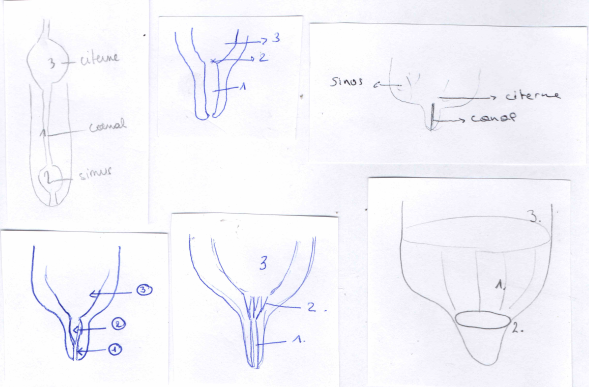 3 citerne
1 canal
2 sinus
3
2
1
sinus
citerne
canal
3
2
1
3
2.
1.
3.
1.
2.